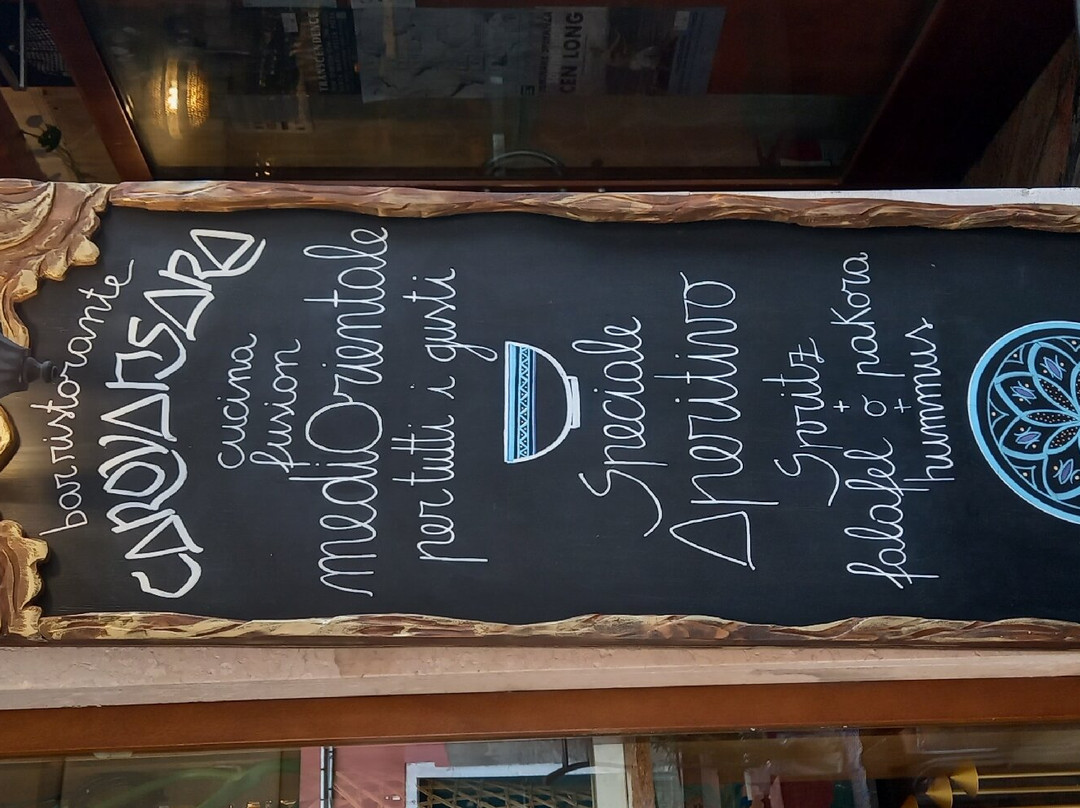 barristorante
CAROVANSARA
cucina
fusion
mediOrientale
per tutti i gusti
Speciale
Aperitivo
Spritz
+
falafel o pakora
+
hummus
CEN LONG